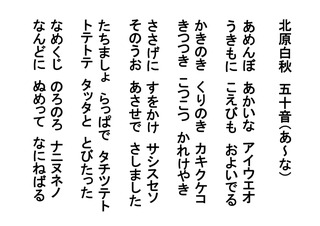 北原白秋 五十音(あ～な)
あめんぼ あかいな アイウエオ
うきもに こえびも およいでる
かきのき くりのき カキクケコ
きつつき こつこつ かれけやき
ささげに すをかけ サシスセソ
そのうお あさせで さしました
たちましょ らっぱで タチツテト
トテトテ タッタと とびたった
なめくじ のろのろ ナニヌネノ
なんどに ぬめって なにねばる